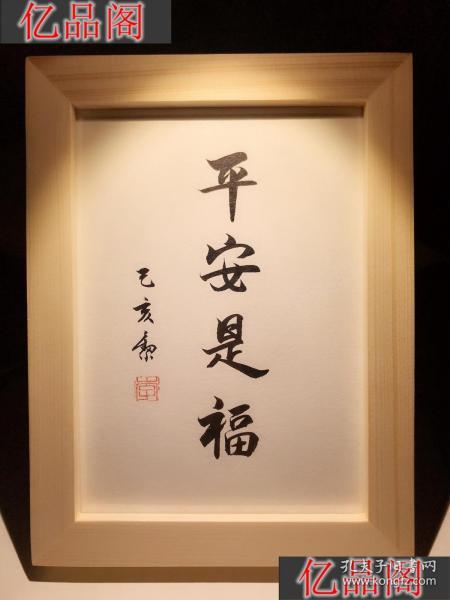 亿品阁
亿品阁
平安是福
己亥
亿品阁
孔夫子旧书网
www.kongfz.com